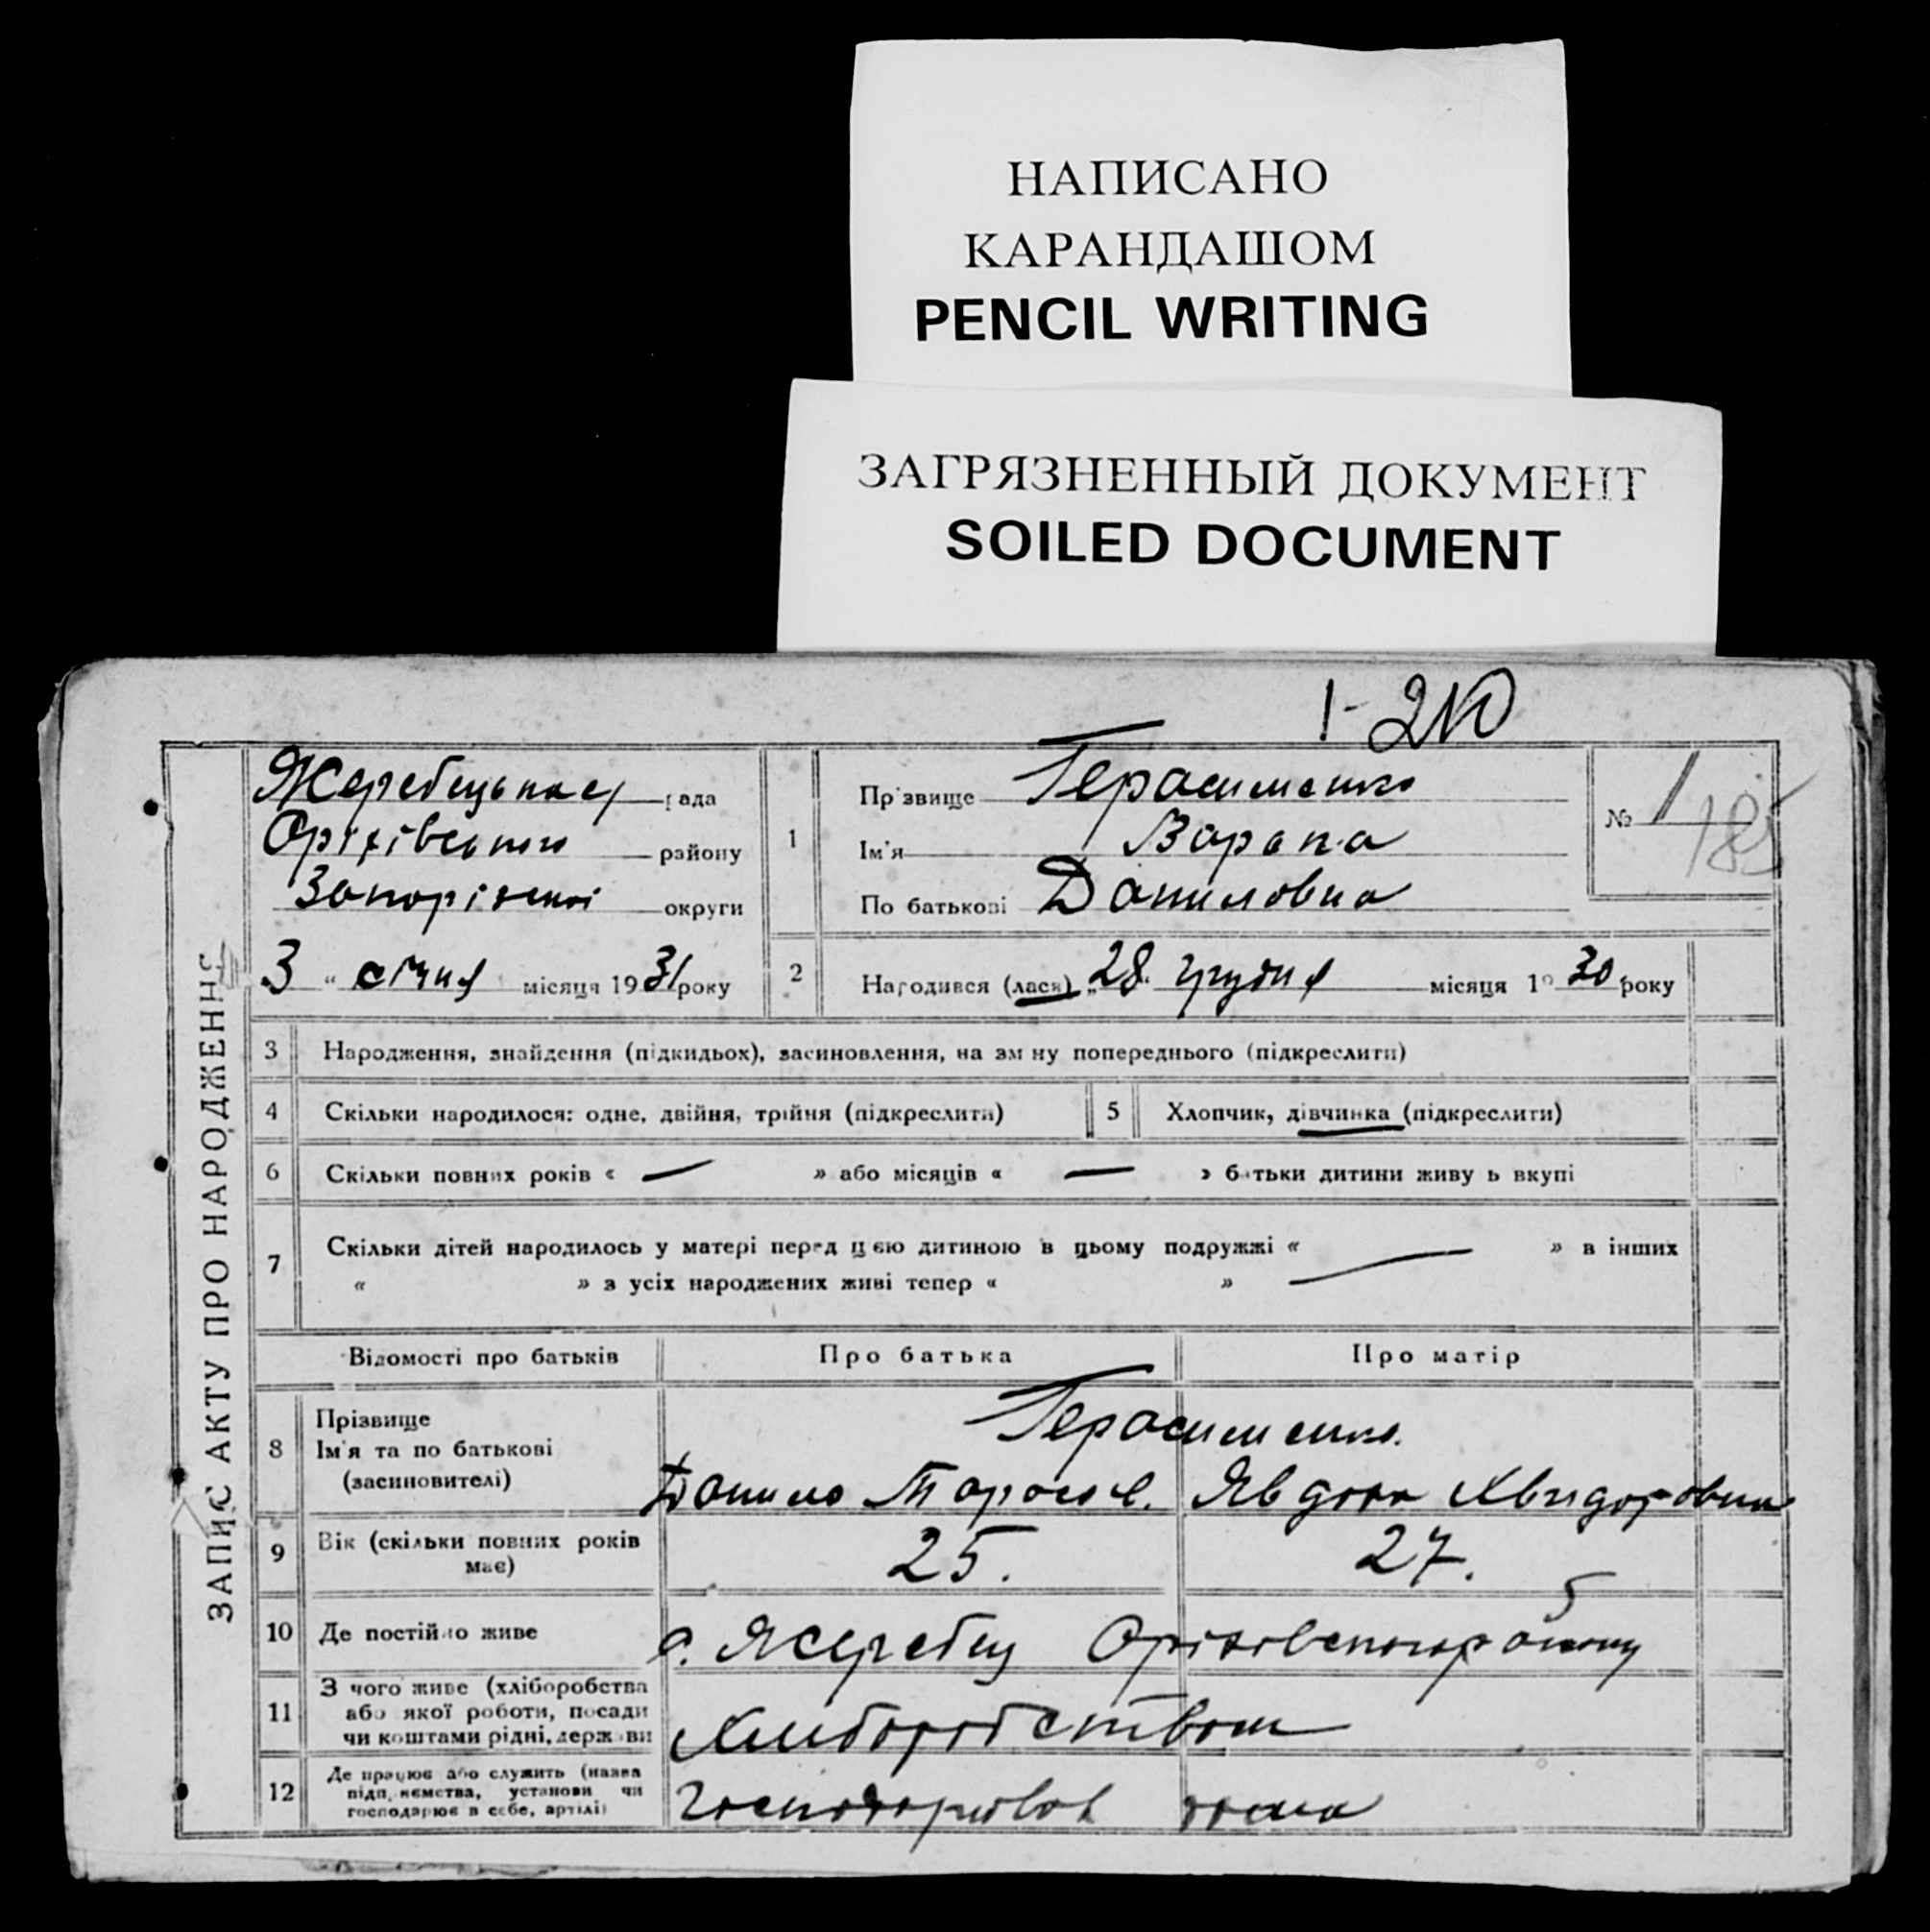 НАПИСАНО
КАРАНДАШОМ
PENCIL WRITING
ЗАГРЯЗНЕННЫЙ ДОКУМЕНТ
SOILED DOCUMENT
ЗАПИС АКТУ ПРО НАРОДЖЕННЯ
Жеребецька рада
Оріхівського району
Запорізької округи
3 " січня місяця 1931 року
1 Прізвище Герасименко
Ім'я
По батькові Даниловна
№ 1
185
2 Народився (лася) „28" грудня місяця 1930 року
3 Народження, знайдення (підкидьох), засиновлення, на зміну попереднього (підкреслити)
4 Скільки народилося: одне, двійня, трійня (підкреслити) 5 Хлопчик, дівчинка (підкреслити)
6 Скільки повних років « — » або місяців « — » батьки дитини живуть вкупі
7 Скільки дітей народилось у матері перед цією дитиною в цьому подружжі « — » в інших
« » з усіх народжених живі тепер « » —
Відомості про батьків Про батька Про матір
8 Прізвище Герасименко.
Ім'я та по батькові
(засиновителі) Данило Тарасов. Явдоха Хвидоровна
9 Вік (скільки повних років має) 25. 27.
10 Де постійно живе с. Жеребец Оріхівського району
11 З чого живе (хліборобства
або якої роботи, посади
чи коштами рідні, держави Хліборобством
12 Де працює або служить (назва
підприємства, установи чи
господарює в себе, артілі) дома